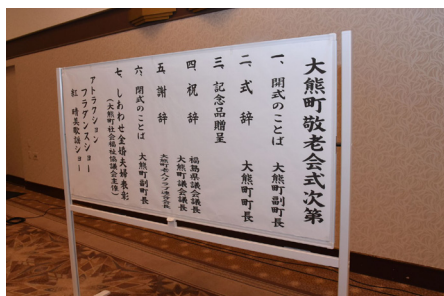 大熊町敬老会式次第
一、開式のことば 大熊町副町長
二、式辞 大熊町町長
三、記念品贈呈
四、祝辞 福島県議会議長
大熊町議会議長
五、謝辞 大熊町老人クラブ連合会長
六、閉式のことば 大熊町副町長
七、しあわせ金婚夫婦表彰
(大熊町社会福祉協議会主催)
アトラクション
フラダンスショー
紅晴美歌謡ショー